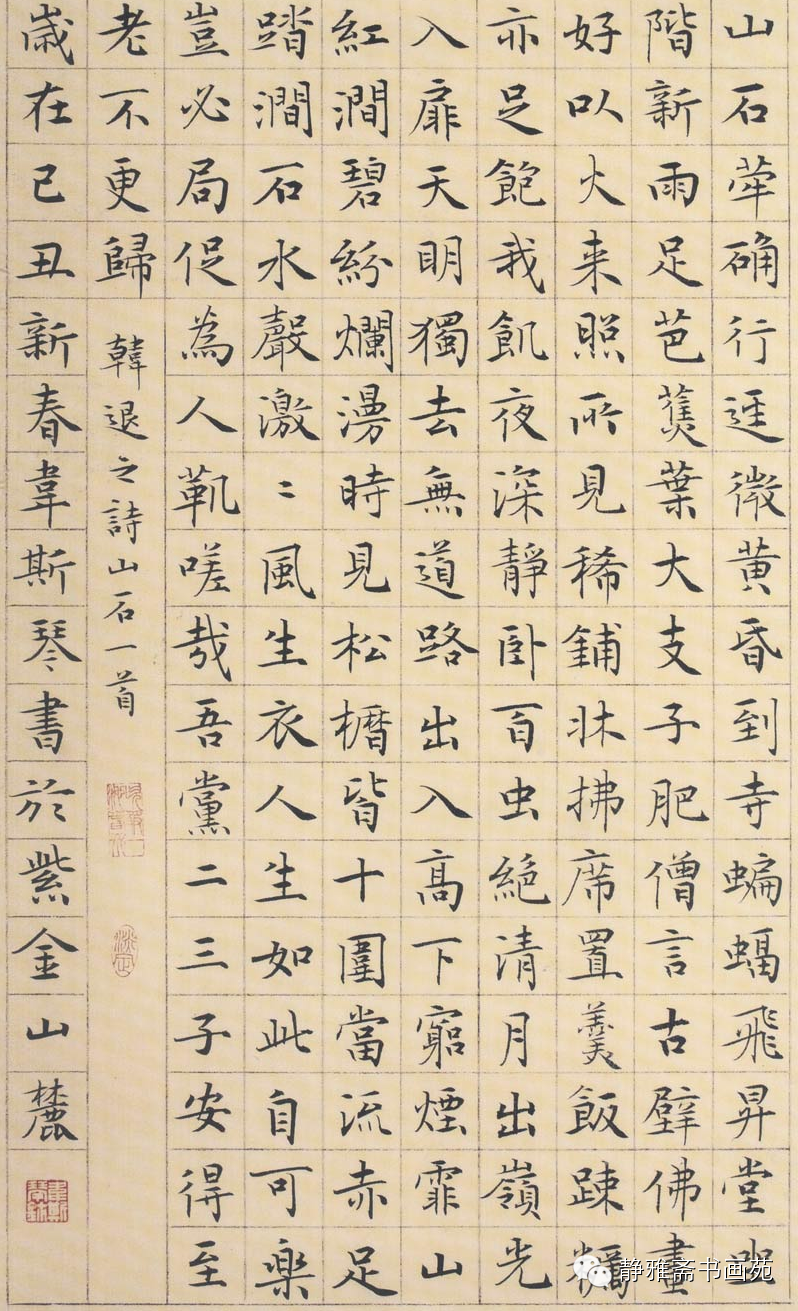 山石犖确行逕微黄昏到寺蝙蝠飛昇堂坐
階新雨足芭蕉葉大支子肥僧言古壁佛畫
好以火来照所見稀鋪牀拂席置羹飯疎糲
亦足飽我飢夜深静卧百虫絶清月出嶺光
入扉天明獨去無道路出入高下窮煙霏山
紅澗碧紛爛漫時見松櫪皆十圍當流赤足
踏澗石水聲激〻風生衣人生如此自可樂
豈必局促為人鞿嗟哉吾黨二三子安得至
老不更歸
韓退之詩山石一首
歲在己丑新春韋斯琴書於紫金山麓
静雅斋书画苑